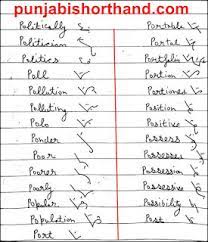 punjabishorthand.com
Politically
Politician
Politics
Poll
Pollution
Polluting
Polo
Ponder
Poor
Poorer
Poorly
Popular
Population
Port
Portable
Portal
Portfolio
Portion
Portioned
Position
Positive
Possess
Possesses
Possession
Possessive
Possibility
Post